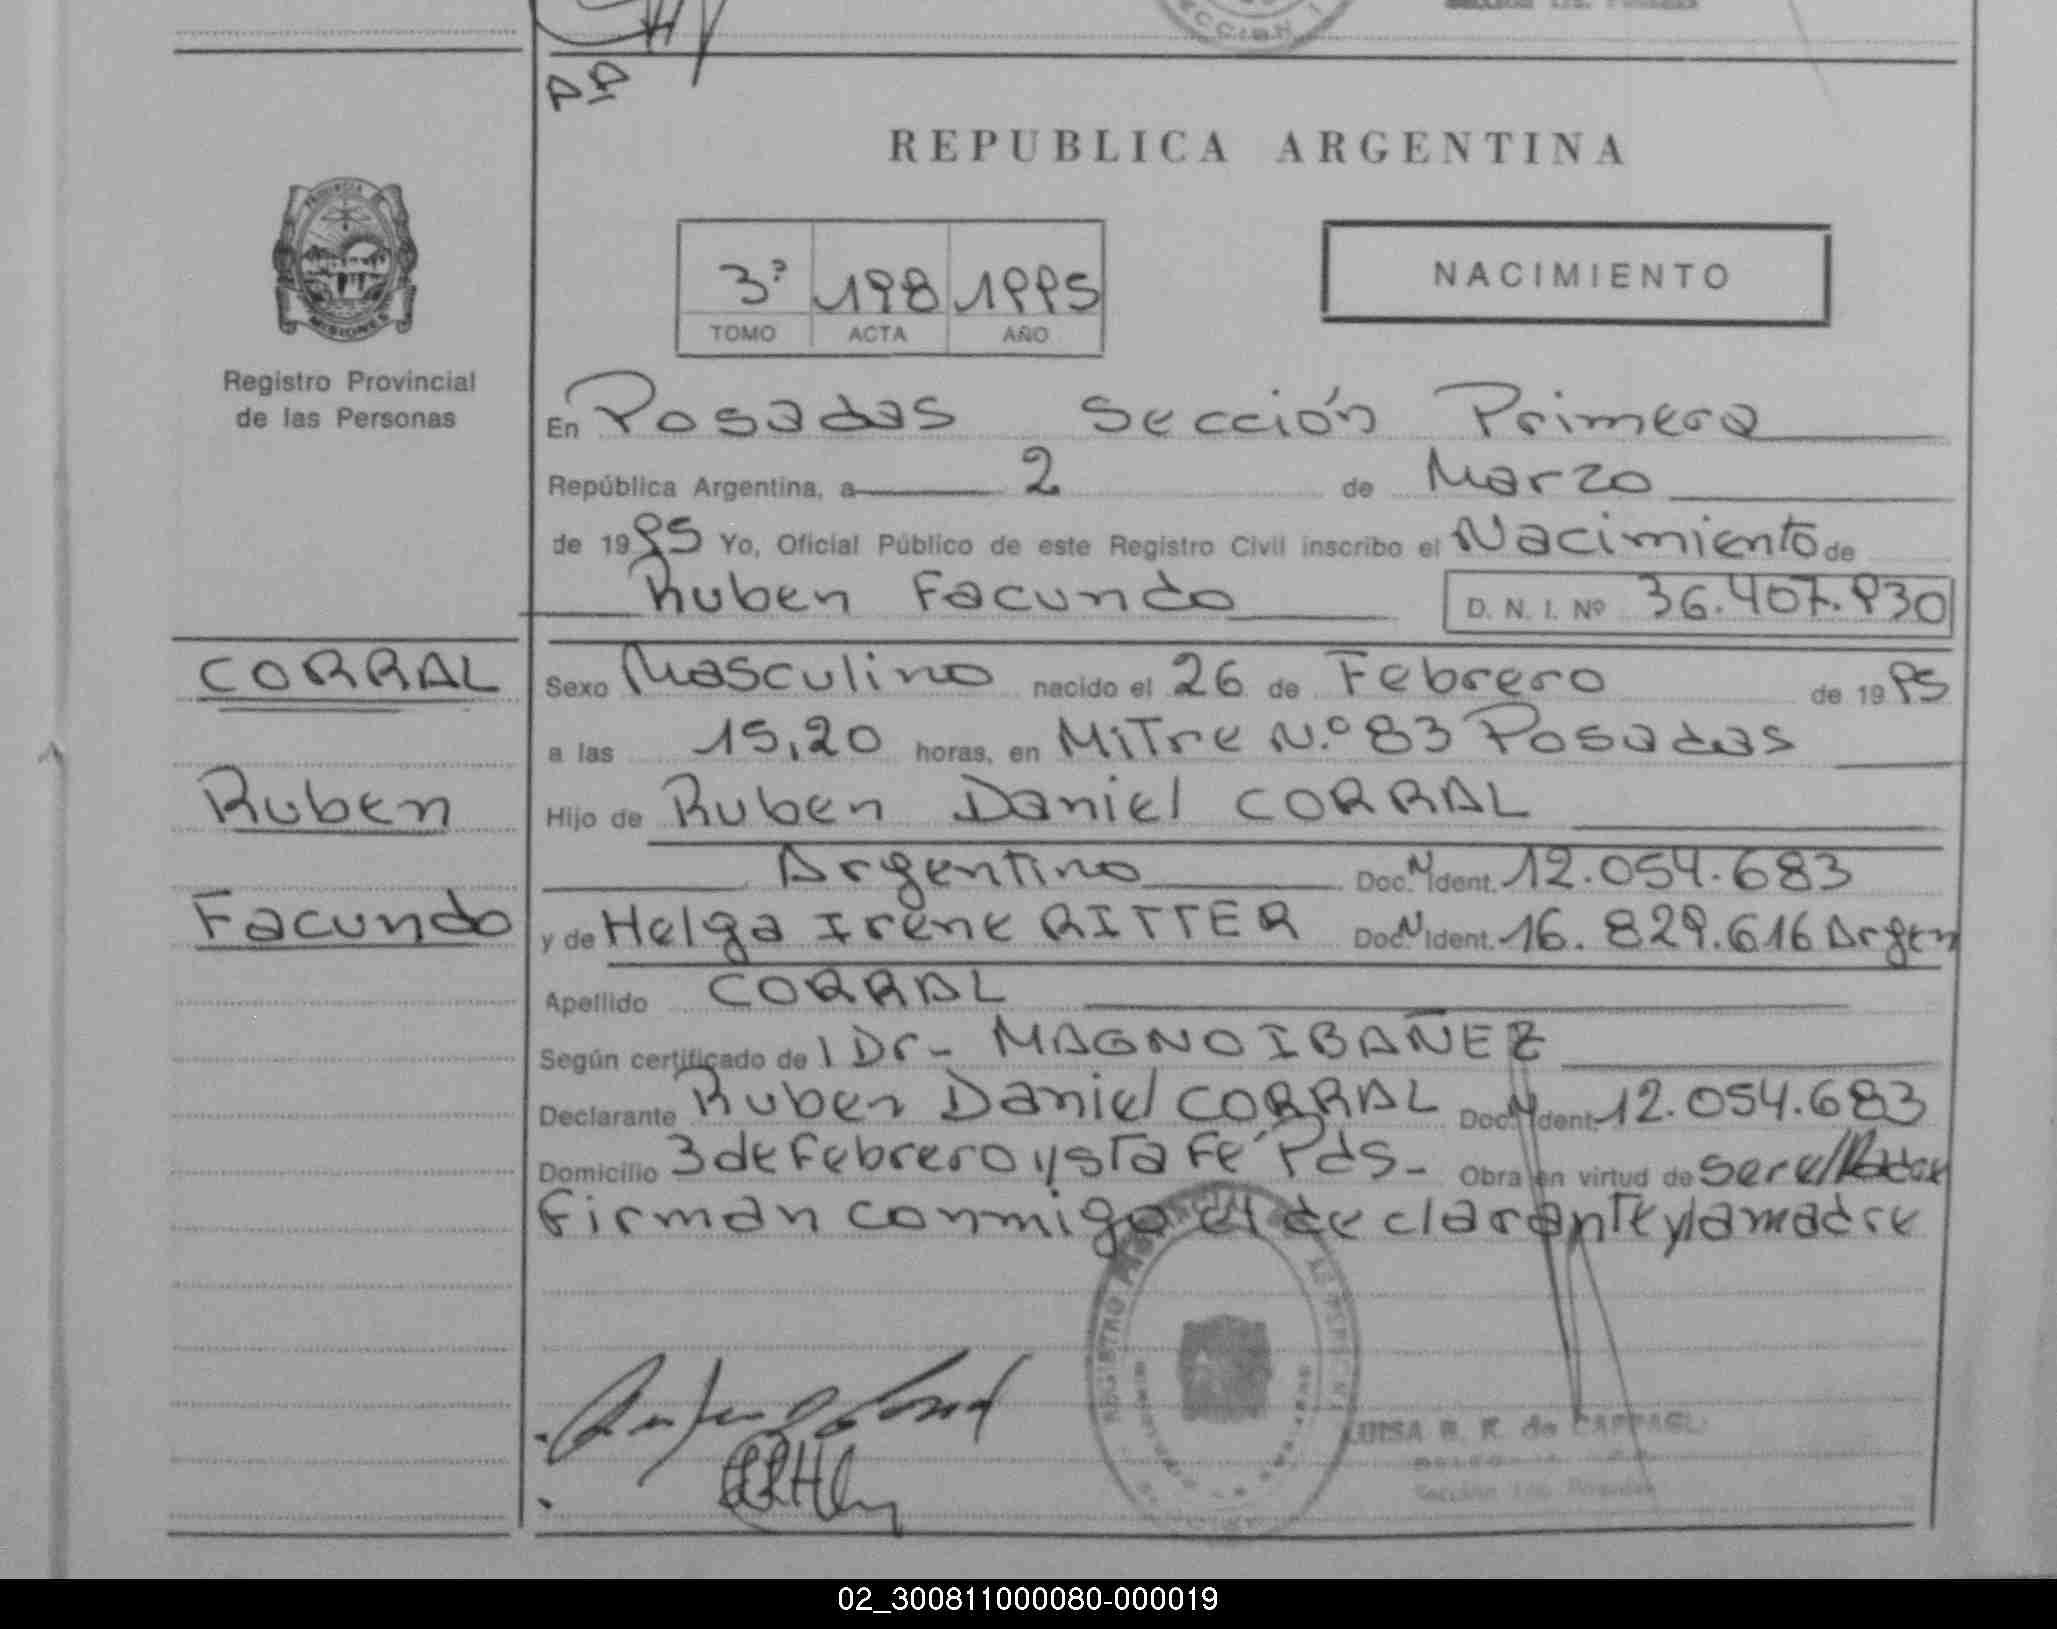 REPUBLICA ARGENTINA
PROVINCIA
MISIONES
Registro Provincial
de las Personas
3º 198 1995
TOMO ACTA AÑO
NACIMIENTO
En Posadas Sección Primera
República Argentina, a 2 de Marzo
de 1995 Yo, Oficial Público de este Registro Civil inscribo el Nacimiento de
Ruben Facundo D. N. I. Nº 36.407.930
CORRAL
Ruben
Facundo
Sexo Masculino nacido el 26 de Febrero de 1995
a las 15,20 horas, en Mitre N.º 83 Posadas
Hijo de Ruben Daniel CORRAL
Argentino Doc. N Ident. 12.054.683
y de Helga Irene RITTER Doc. N Ident. 16.829.616 Argen
Apellido CORRAL
Según certificado de l Dr- MAGNO IBAÑEZ
Declarante Ruben Daniel CORRAL Doc. N Ident. 12.054.683
Domicilio 3 de Febrero y Sta Fé Pds- Obra en virtud de ser el
Firman conmigo el declarante y la madre
REGISTRO
LUISA R. K. de
Sección 1ra. Posadas
02_300811000080-000019